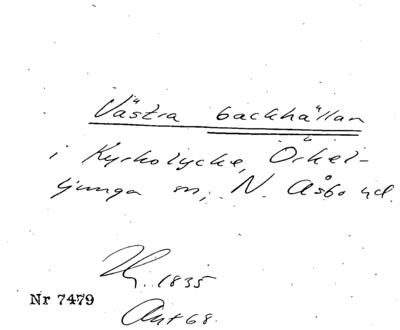 Västra backhällan
i Kyrkolycke, Örkel-
ljunga sn, N. Åsbo hd.
1835
Nr 7479
Akt 68.